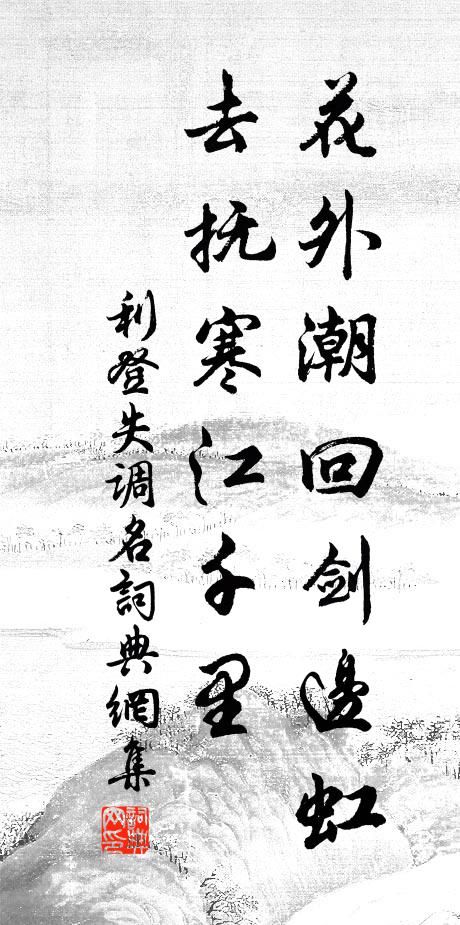 花外潮回剑邊虹
去抚寒江千里
利登失调名詞典網集
詞典网印